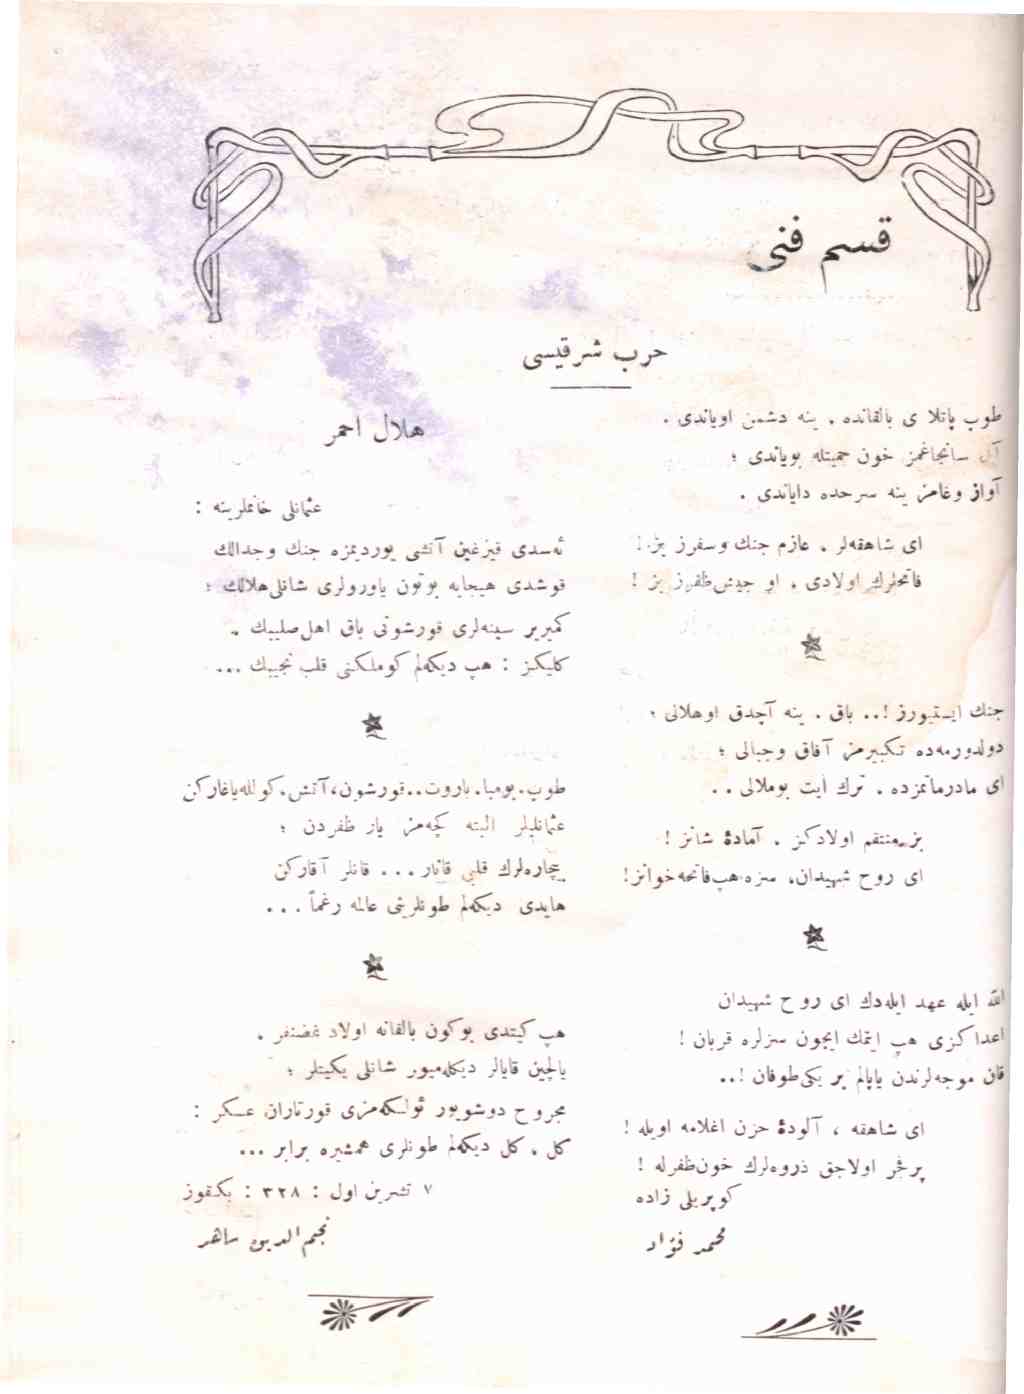 قسم فنی
حرب شرقیسی
طوپ پاتلا ی بالقانده . ینه دشمن اویاندی .
آل سانجاغمز خون حمیتله بویاندی ؛
آواز وغامز ینه سرحده دایاندی .
ای شاهقه‌لر . عازم جنك وسفرز بز !
فاتحلرك اولادی . او جیش ظفرز بز !
جنك ایستیورز !.. باق . ینه آچدق اوهلالی ؛
دولدورمه‌ده تکبیرمز آفاق وجبالی ؛
ای مادرماتمزده . ترك ایت بوملالی . .
بز منتقم اولادکز . آمادهٔ شانز !
ای روح شهیدان، سزه هپ فاتحه خوانز !
الله ایله عهد ایله‌دك ای روح شهیدان
اعداکزی هپ ایتمك ایچون سزلره قربان !
قان موجه‌لرندن یاپالم بر یکی طوفان !..
ای شاهقه ، آلودهٔ حزن اغلامه اویله !
پرفجر اولاجق ذروه‌لرك خون ظفرله !
کوپریلی زاده
محمد فؤاد
هلال احمر
عثمانلی خانملرینه :
ئه‌سدی قیزغین آتشی یوردیمزه جنك وجدالك
قوشدی هیجایه بوتون یاورولری شانلی هلالك ؛
کمیریر سینه‌لری قورشونی باق اهل صلیبك .
کلیکز : هپ دیکه‌لم کوملکنی قلب نجیبك ...
طوپ. بومبا. باروت.. قورشون، آتش. کولله یاغارکن
عثمانلیلر البته کچه‌مز یار ظفردن ؛
بیچاره‌لرك قلبی قانار ... قانلر آقارکن
هایدی دیکه‌لم طونلرینی عالمه رغماً ...
هپ کیتدی بوکون بالقانه اولاد غضنفر .
یالچین قایالر دیکله‌میور شانلی یکیتلر ؛
مجروح دوشیور ئولکه‌مزی قورتاران عسکر :
کل . کل دیکه‌لم طونلری همشیره برابر ...
٧ تشرین اول : ٣٢٨ : بکقوز
نجم الدین ساهر